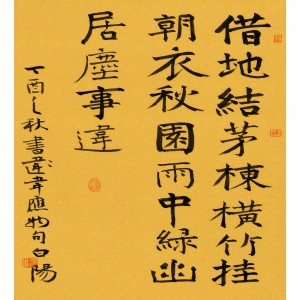 借地結茅棟橫竹挂
朝衣秋園雨中綠幽
居塵事違
丁酉之秋書韋應物句白陽